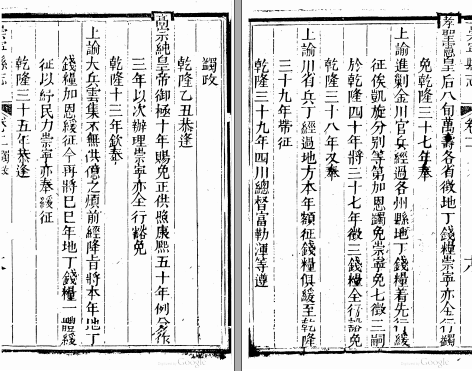 蠲政
乾隆乙丑恭逢
高宗純皇帝御極十年賜免正供照康熙五十年例分作
三年以次辦理崇寧亦全行豁免
乾隆十三年欽奉
上諭大兵雲集不無供億之煩前經降旨將本年地丁
錢糧加恩緩征今再將己巳年地丁錢糧一體緩
征以紓民力崇寧亦奉緩征
乾隆三十五年恭逢
孝聖憲皇后八旬萬壽各省徵地丁錢糧崇寧亦全行蠲
免乾隆三十七年奉
上諭進剿金川官兵經過各州縣地丁錢糧着先行緩
征俟凱旋分別等第加恩蠲免崇寧免七徵三嗣
於乾隆四十年將三十七年徵三錢糧全行豁免
乾隆三十八年又奉
上諭川省兵丁經過地方本年額征錢糧俱緩至乾隆
三十九年帶征
乾隆三十九年四川總督富勒渾等遵
Google
Google